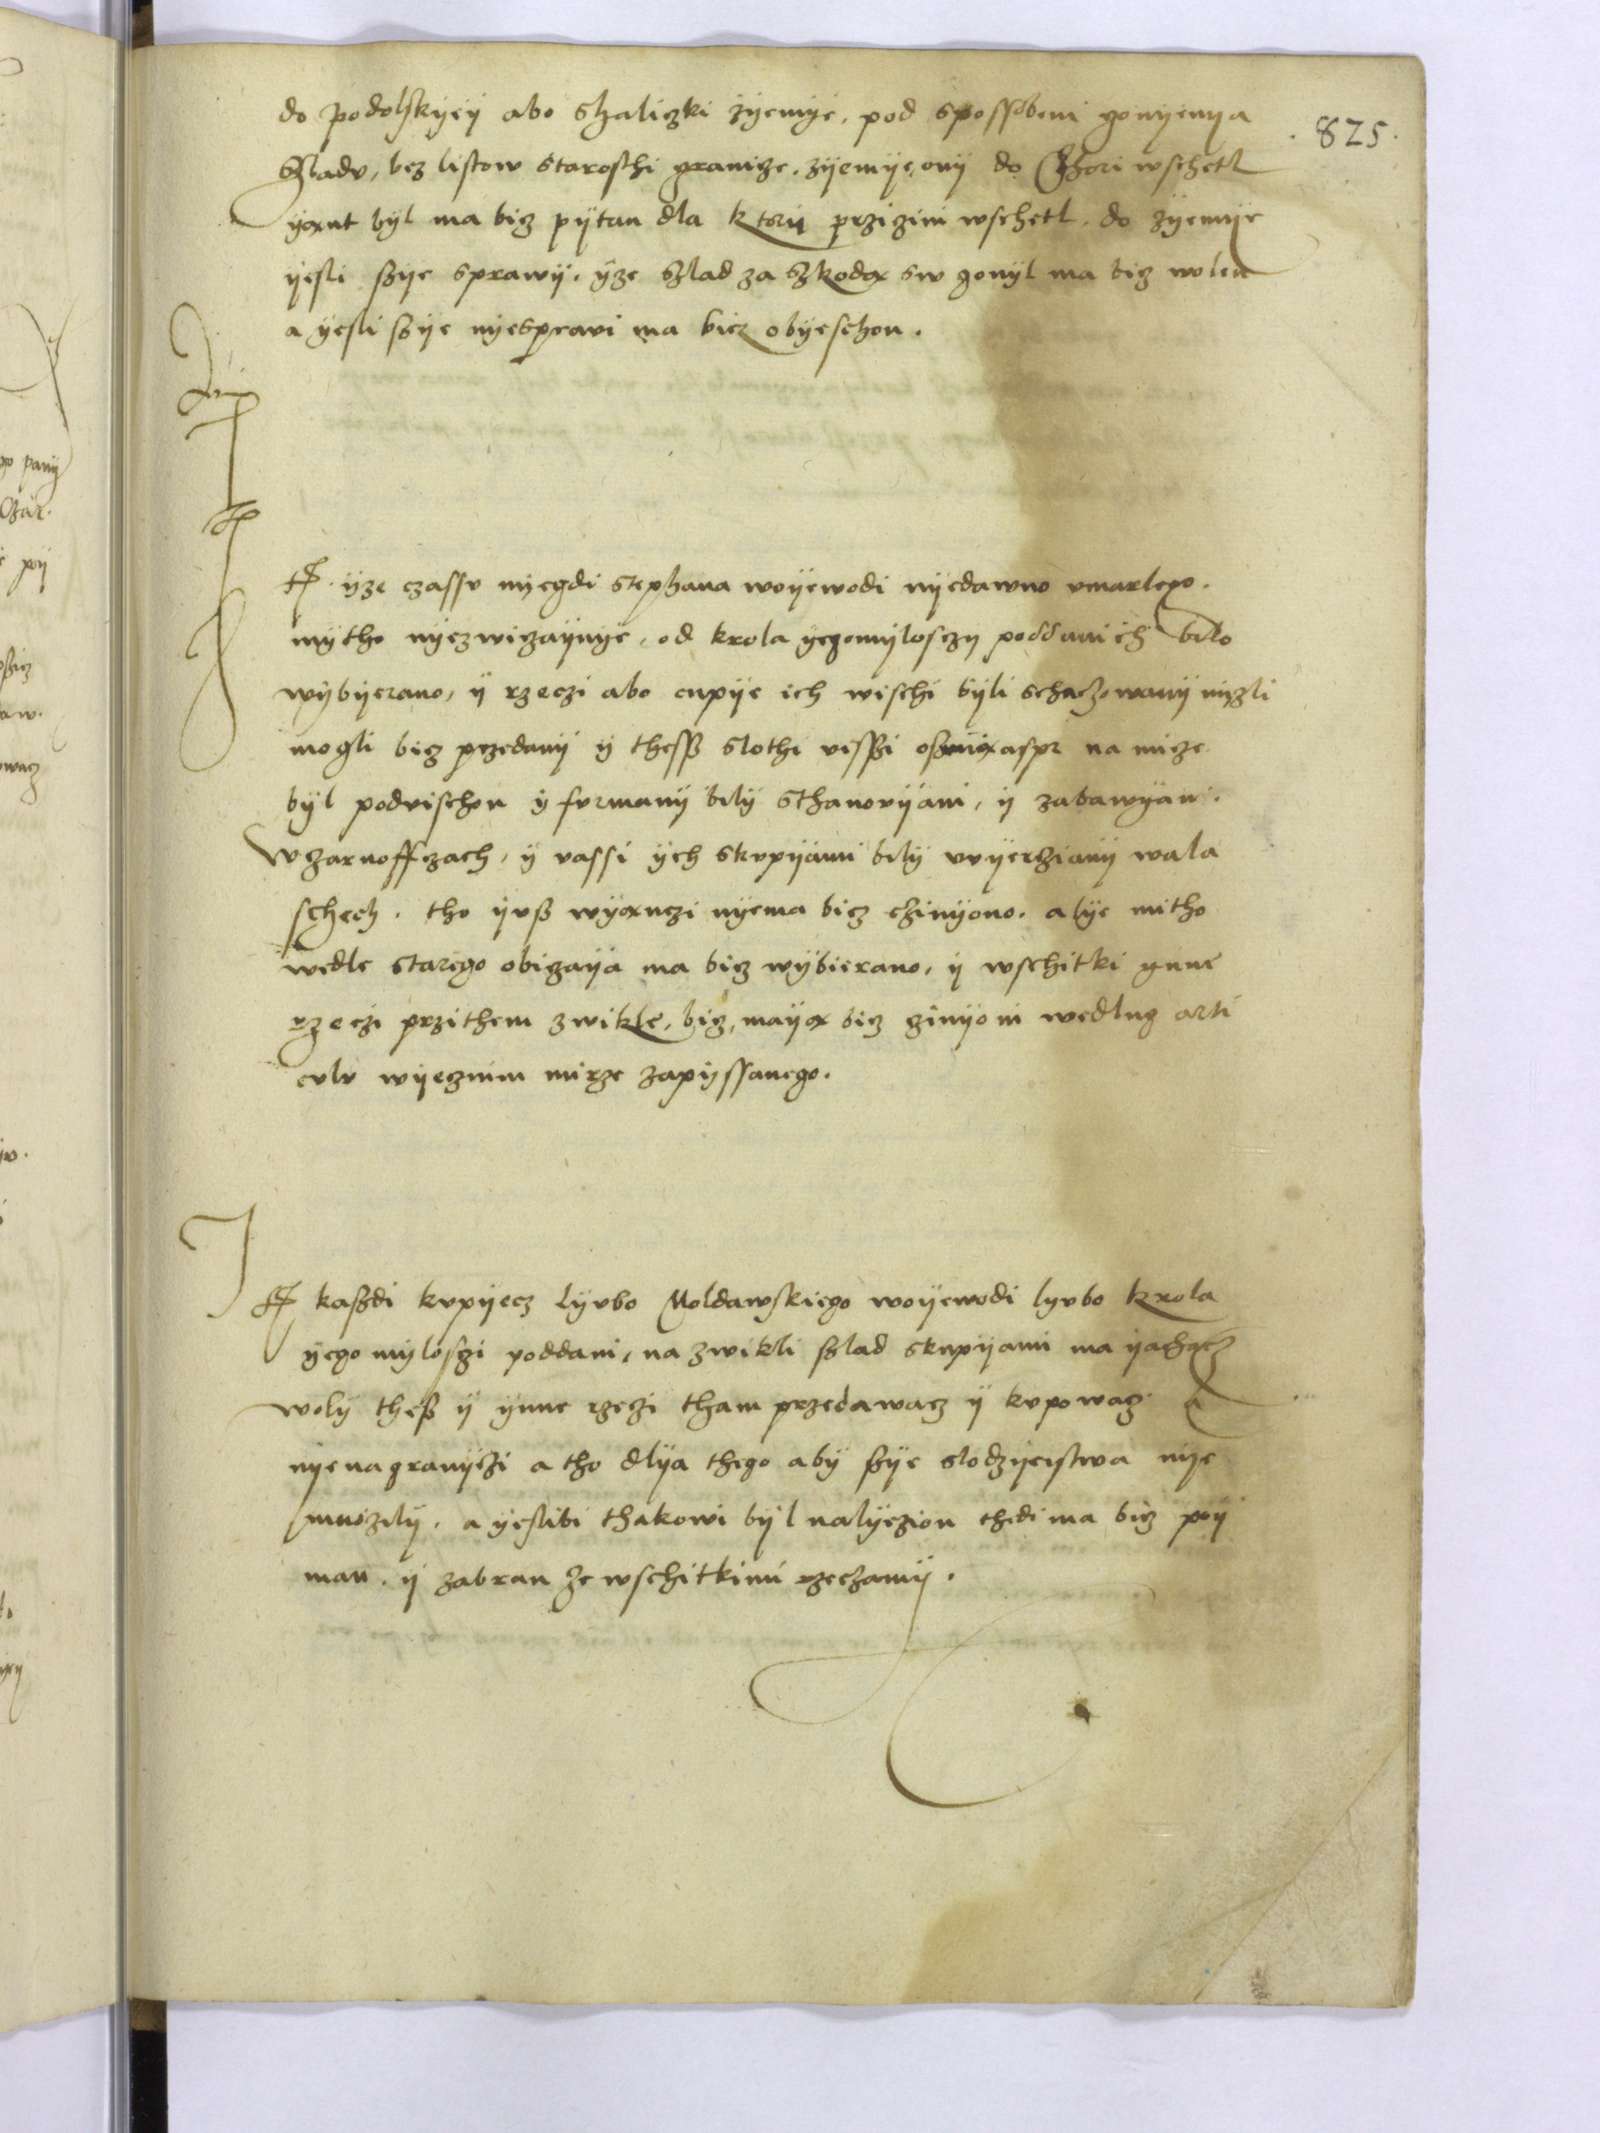 825
do podolskyey abo Shaliczki zyemye, pod spossobem gonyenya
Szladu, bez listow starosthi granicze, zyemye ony do Chori wschetl
yąnt byl ma bicz pytan dla ktory przyczini wschetl, do zyemye
yesli szye sprawy, yze Szlad za Szkodą sw gonyl ma bicz wolen
a yesli szye nyesprawi ma bicz obyeschon.
It. yze czassu nyegdi Stephana woyewodi nyedawno vmarlego.
mytho nyezwiczaynye, od krola yegomylosczy poddanich bilo
wybyerano, y rzeczi abo cupye ich wischi byli schaczowany nizli
mogli bicz przedany y thesz slothi visszi aspr na micze
byl podvischon y furmany bily Sthanovyani, y zabawyani.
Wczarnoffczach, y vassi ych skupyami bily vvyerziany wala
schech. tho yusz wyąnczi nyema bicz czinyono. alye mitho
wedle starego obiczaya ma bicz wybierano, y wschitki gnne
rzeczi przithem zwikle, bicz, mayą bicz czinyoni wedlug arti
culu wyecznim mirze zapyssanego.
It kaszdi kupyecz lyubo Moldawskiego woyewodi lyubo krola
yego myloszi poddani, na zwikli szlad skupyami ma yachacz
woly thesz y ynne rzeczi tham przedawacz y kupowacz a
nye na granyczi a tho dlya thego aby szye slodzyeystwa nye
mnozily. a yeslibi thakowi byl nalyezion thedi ma bicz poy
man. y zabran ze wschitkimi rzeczamy.